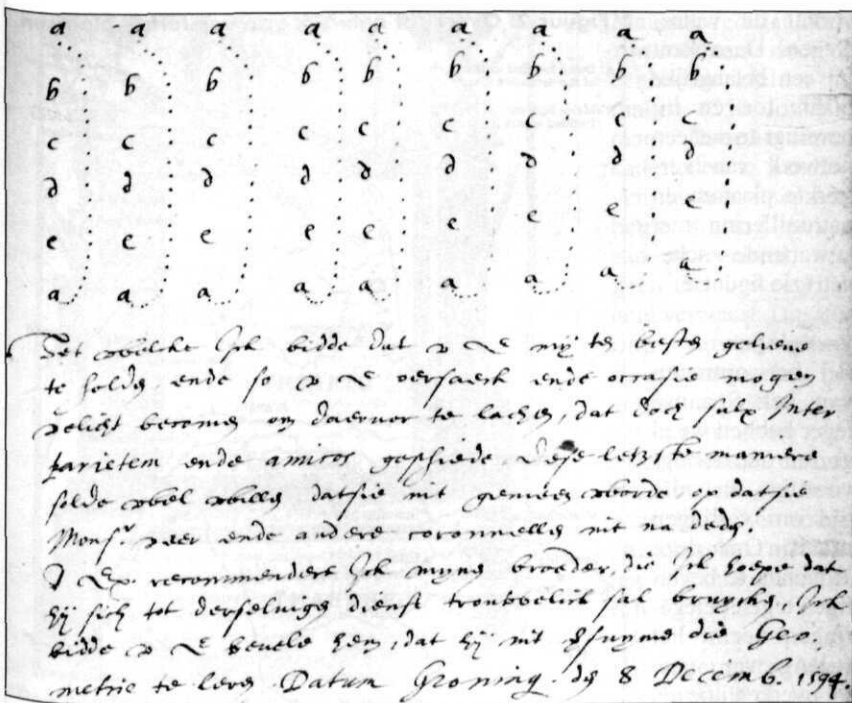 a a a a a a a a a
b b b b b b b b b
c c c c c c c c c
d d d d d d d d d
e e e e e e e e e
a a a a a a a a a
Het welcke Ick bidde dat v L mij te besten gelieve
te holden ende so v L oersaeck ende occasie mogen
velicht becomen om daervor te lachen, dat doch sulx Inter
parietem ende amicos geschiede Dese letzste maniere
solde wel willen datsie nit gemeen worde op datsie
Monsr veer ende andere coronnellen nit na deden,
V Ex. recommendere Ick myne broeder, die Ick hoepe dat
hij sich tot derselvigen dienst trouwelick sal bruycken Ick
bidde v L bevele hem, dat hij nit versuyme die Geo-
metrie te leren. Datum Groning. den 8 Decemb. 1594.